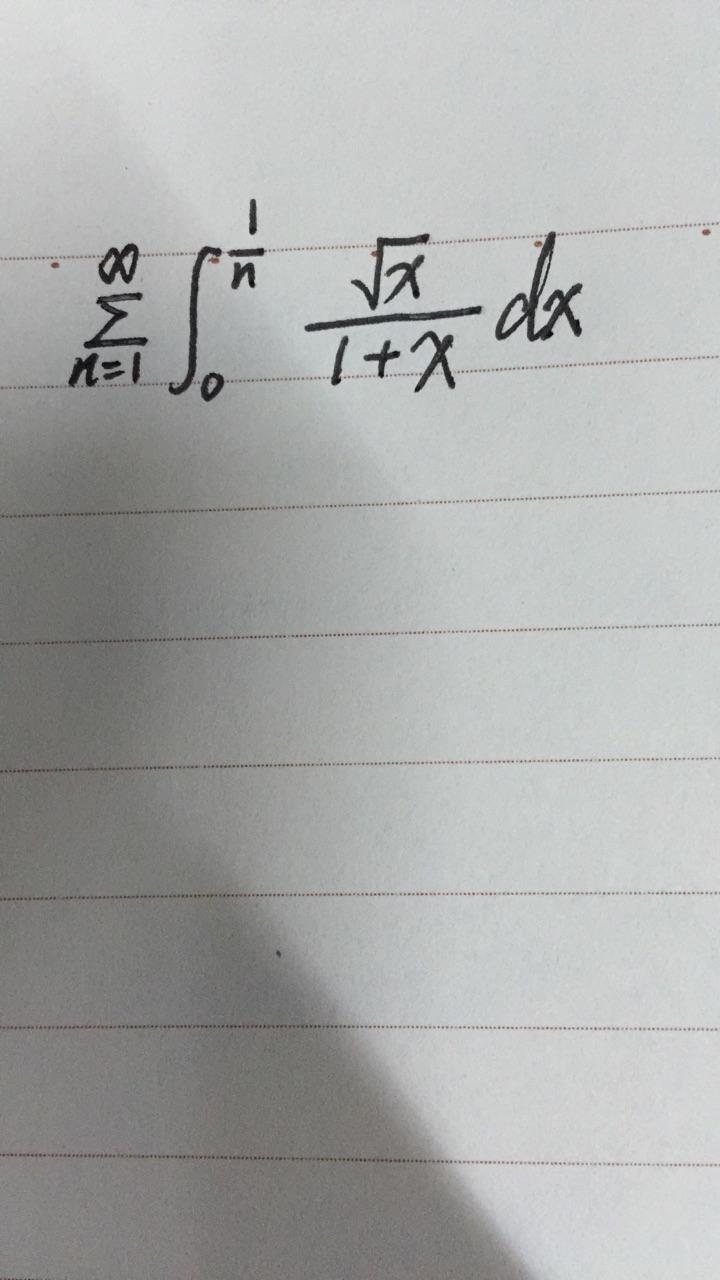 $\sum_{n=1}^{\infty} \int_{0}^{\frac{1}{n}} \frac{\sqrt{x}}{1+x} dx$